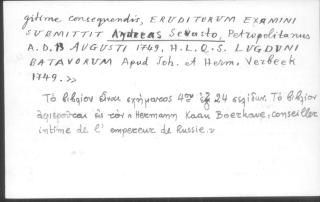 gitime consequendis, ERUDITORUM EXAMINI
SUBMITTIT Andreas Sevasto, Petropolitanus
A.D. AUGUSTI 1749. H.L.Q.S. LUGDUNI
BATAVORUM Apud Joh. et Herm. Verbeek
1749.»
Τὸ βιβλίον εἶναι σχήματος 4ου ἐξ 24 σελίδων. Τὸ βιβλίον
ἀφιεροῦται εἰς τὸν « Hermann Kaau Boerhave, conseiller
intime de l' empereur de Russie.»